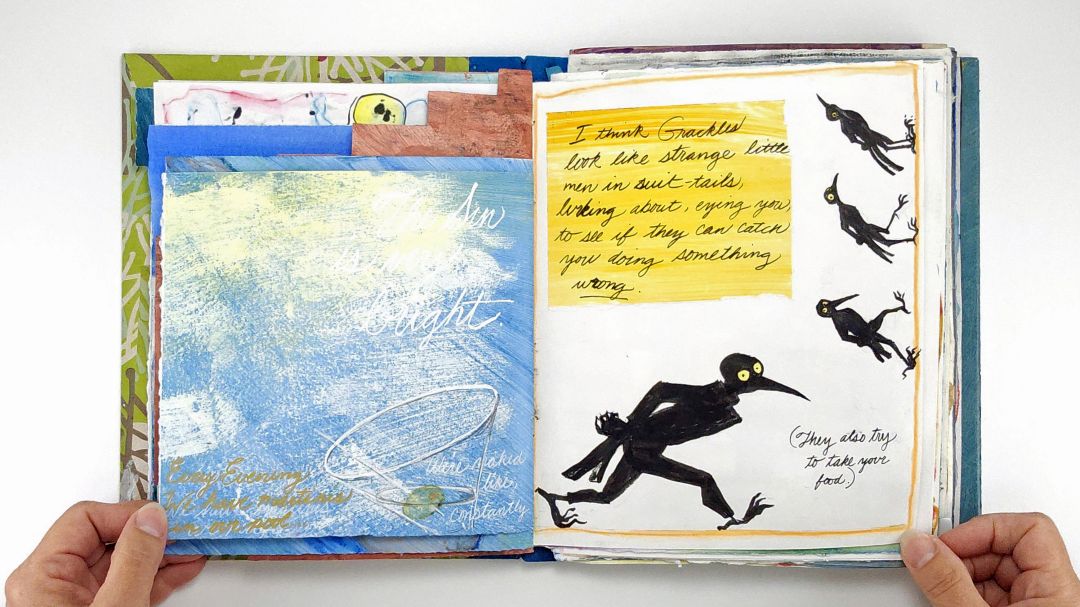 The Sun
is
Bright.
Every Evening,
We have martinis
in our pool...
We're naked
like,
constantly
I think Grackles
look like strange little
men in suit-tails,
looking about, eying you,
to see if they can catch
you doing something
wrong.
(They also try
to take your
food.)